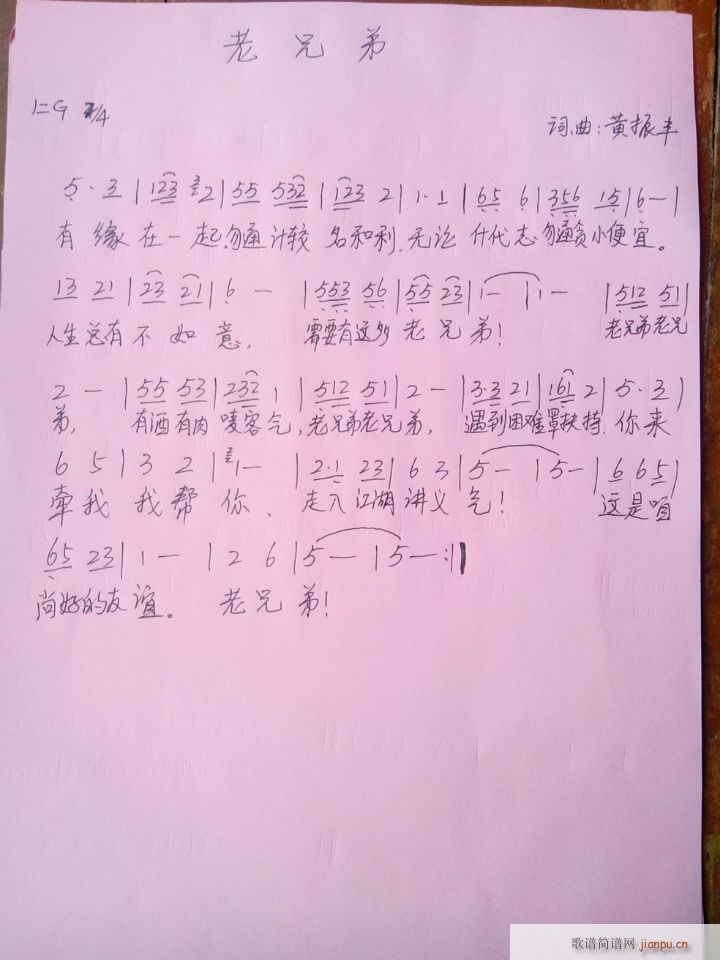 老兄弟
1=G 2/4
词、曲:黄振丰
5· 3 | 123 2 | 55 532 | 123 2 | 1· 1 | 65 6 | 356 15 | 6 — |
有缘在一起,勿通计较名和利,无论什代志勿通贪小便宜。
13 21 | 23 21 | 6 — | 553 56 | 55 23 | 1 — | 1 — | 512 51 |
人生总有不如意, 需要有这多老兄弟! 老兄弟老兄
2 — | 55 53 | 232 1 | 512 51 | 2 — | 3·3 21 | 161 2 | 5· 3 |
弟, 有酒有肉唛客气,老兄弟老兄弟, 遇到困难罩扶持,你来
6 5 | 3 2 | 1 — | 2·1 23 | 6 3 | 5 — | 5 — | 6 65 |
牵我我帮你、走入江湖讲义气! 这是咱
65 23 | 1 — | 2 6 | 5 — | 5 — :||
尚好的友谊。 老兄弟!
歌谱简谱网
jianpu.cn